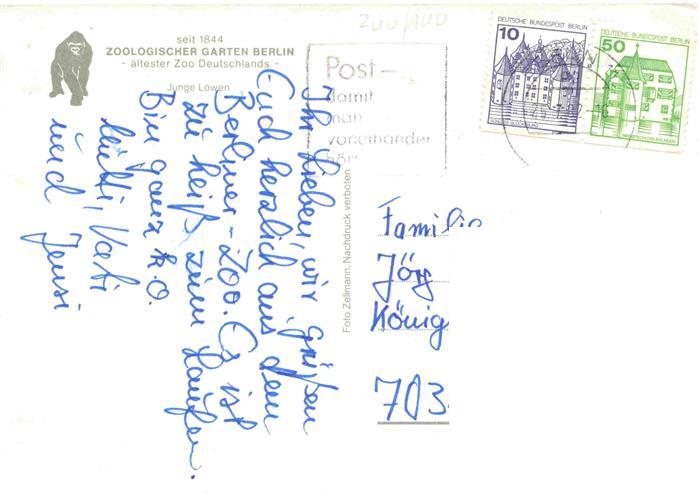 seit 1844
ZOOLOGISCHER GARTEN BERLIN
- ältester Zoo Deutschlands -
Junge Löwen
200/100
Post –
damit
man
voneinander
hört
DEUTSCHE BUNDESPOST BERLIN
10
DEUTSCHE BUNDESPOST BERLIN
50
Ihr Lieben, wir grüßen
Euch herzlich aus dem
Berliner-Zoo. Es ist
zu heiß zum Laufen.
Bin ganz k.o.
Mutti, Vati
und Jensi
Foto Zellmann, Nachdruck verboten
Familie
Jörg
König
703